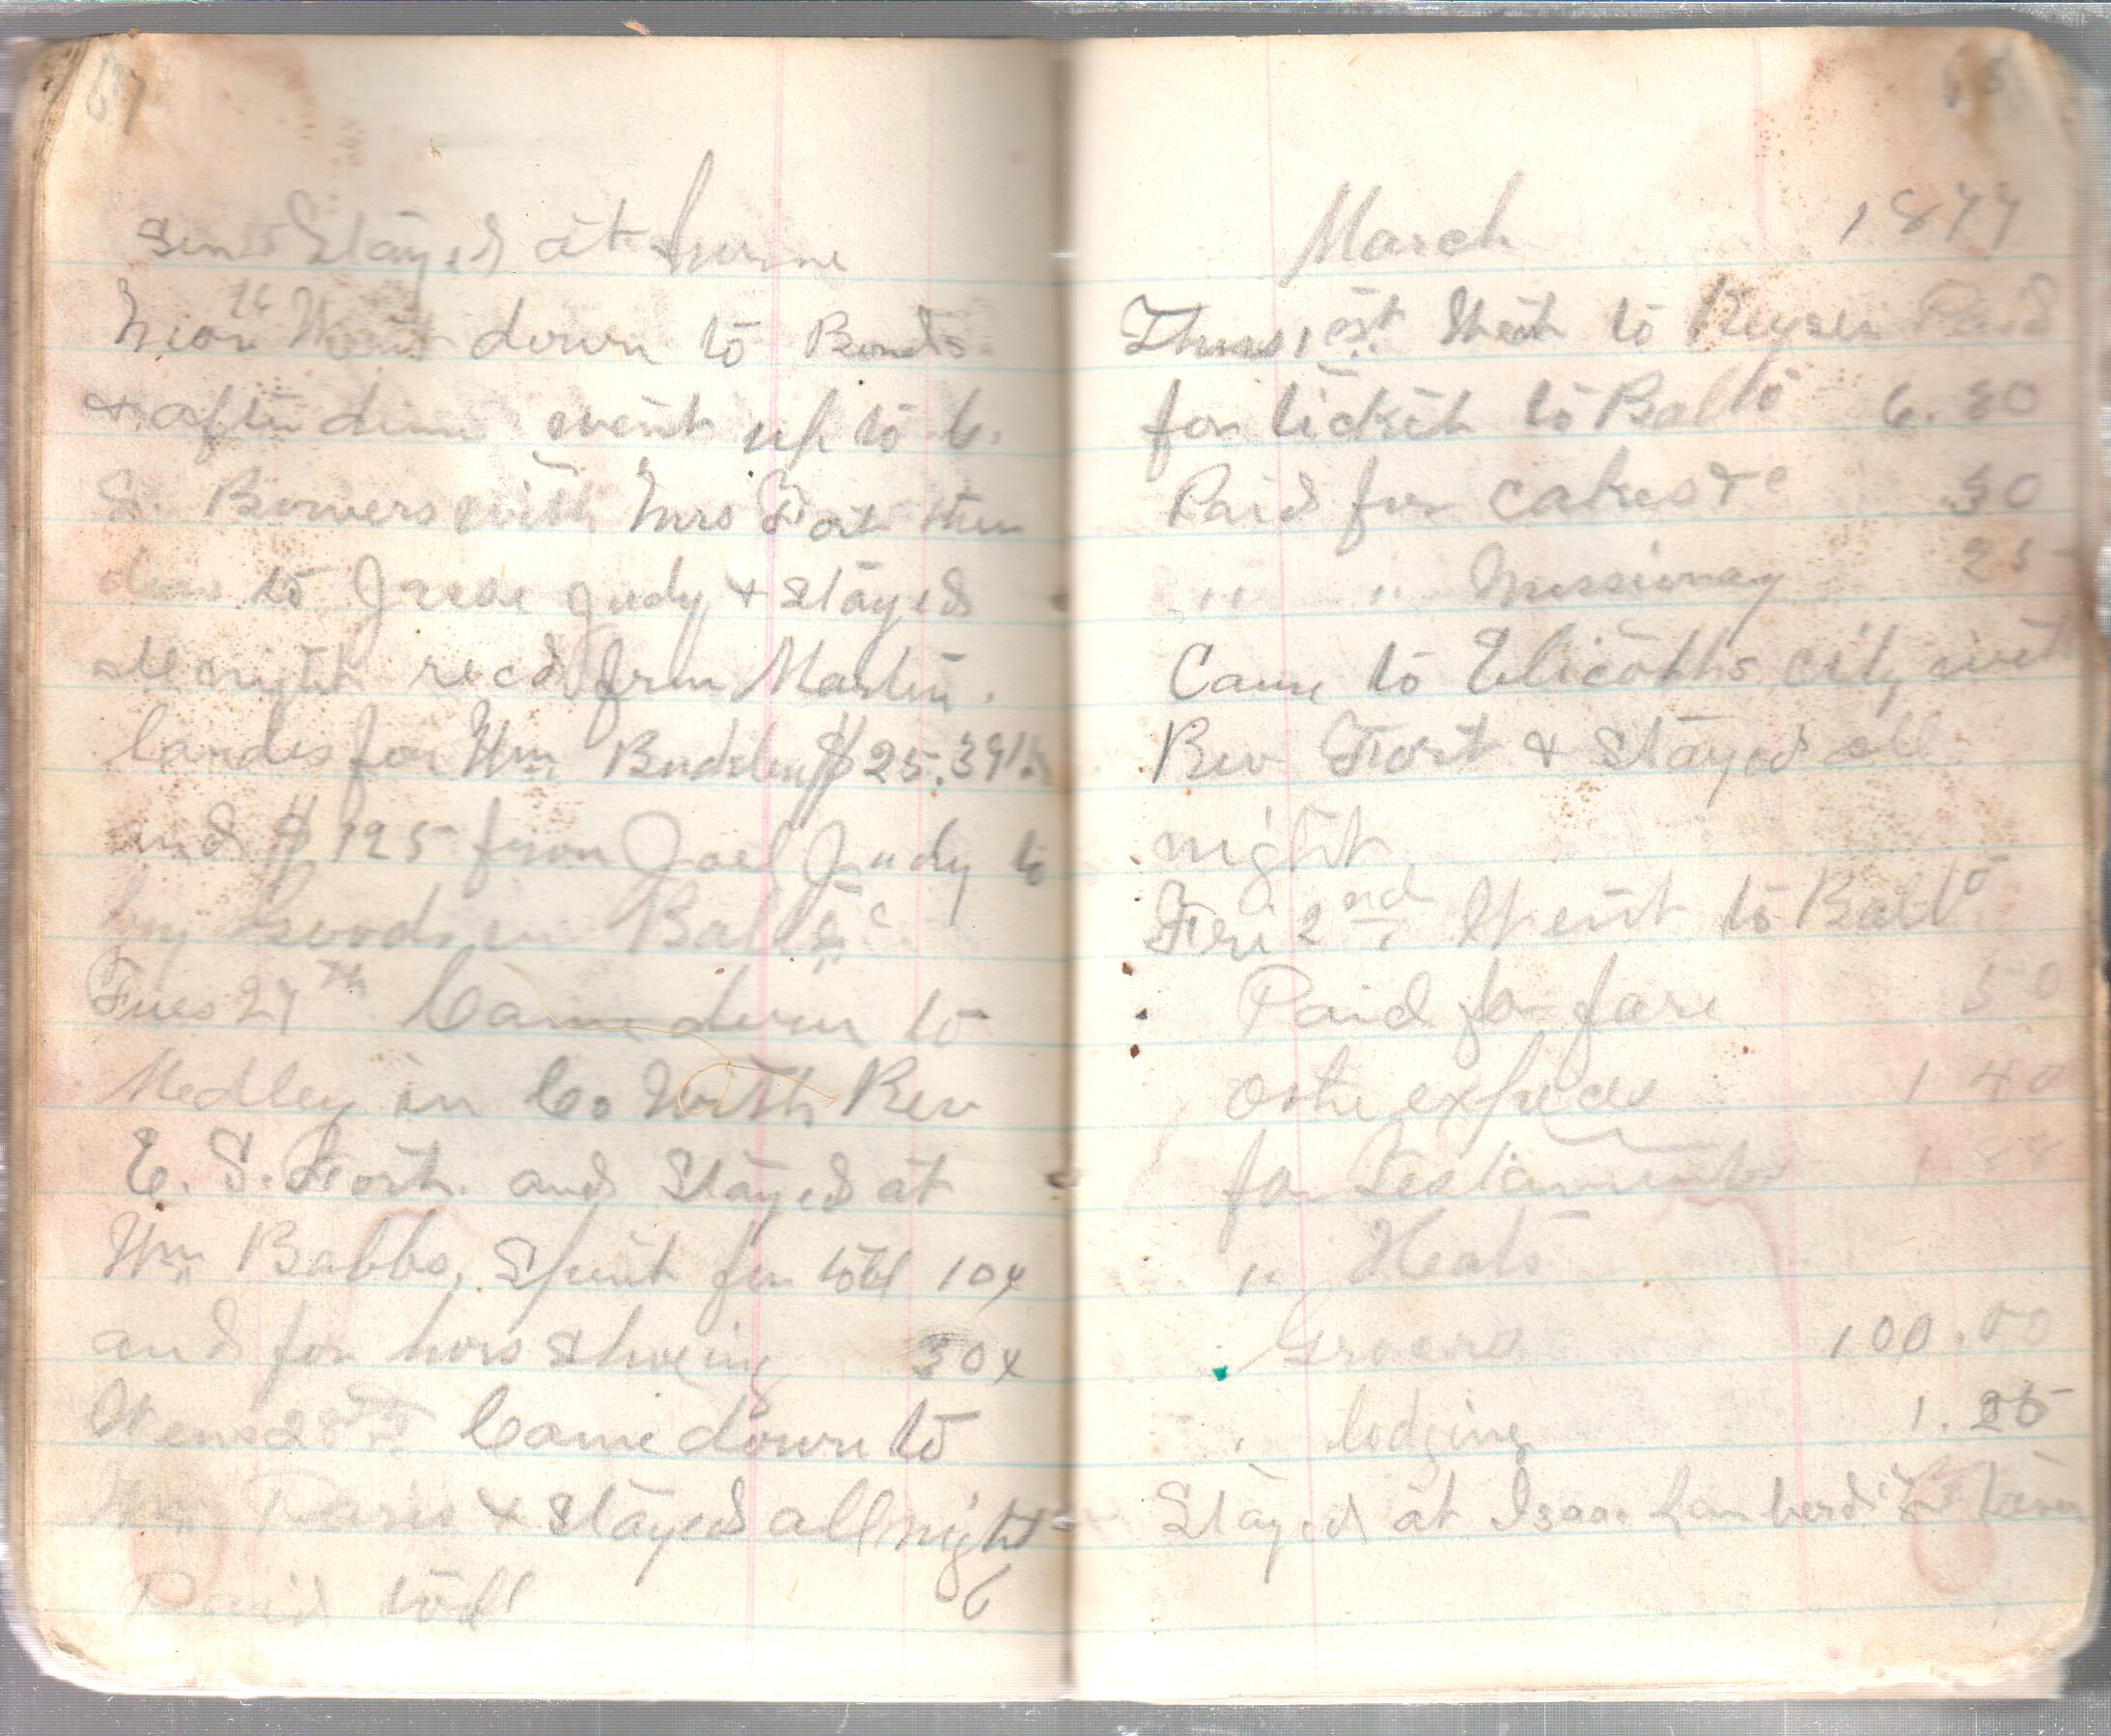 67
Sun 25 Stayed at home
Mon 26 Went down to Bonds
& after dinn went up to C.
S. Bowers with Mrs Fort then
down to Jesse Judy & stayed
all night recd from Martin
Landes for Wm 25.39
and $125 from Joel Judy to
by Goods in Balto &c
Tues 27th Came down to
Medley in Co With Rev
E. S. Fort and Stayed at
Wm Babbs, Spent for toll 10¢
and for hors shoeing 50¢
Wens 28th Came down to
Wm Paris & stayed all night
Paid toll 6
March 1877
Thurs 1est Went to Keyser Paid
for tickit to Balto 6.80
Paid for cakes &c 30
" " Missionay 25
Came to Elicotts city with
Rev Fort & Stayed all
night
Fri 2nd Went to Balto
Paid for fare 50
othe expecs 1 40
for Testaments 1 88
" Heats
Grocers 100.00
" lodging 1.25
Stayed at Isaac Lamberd's